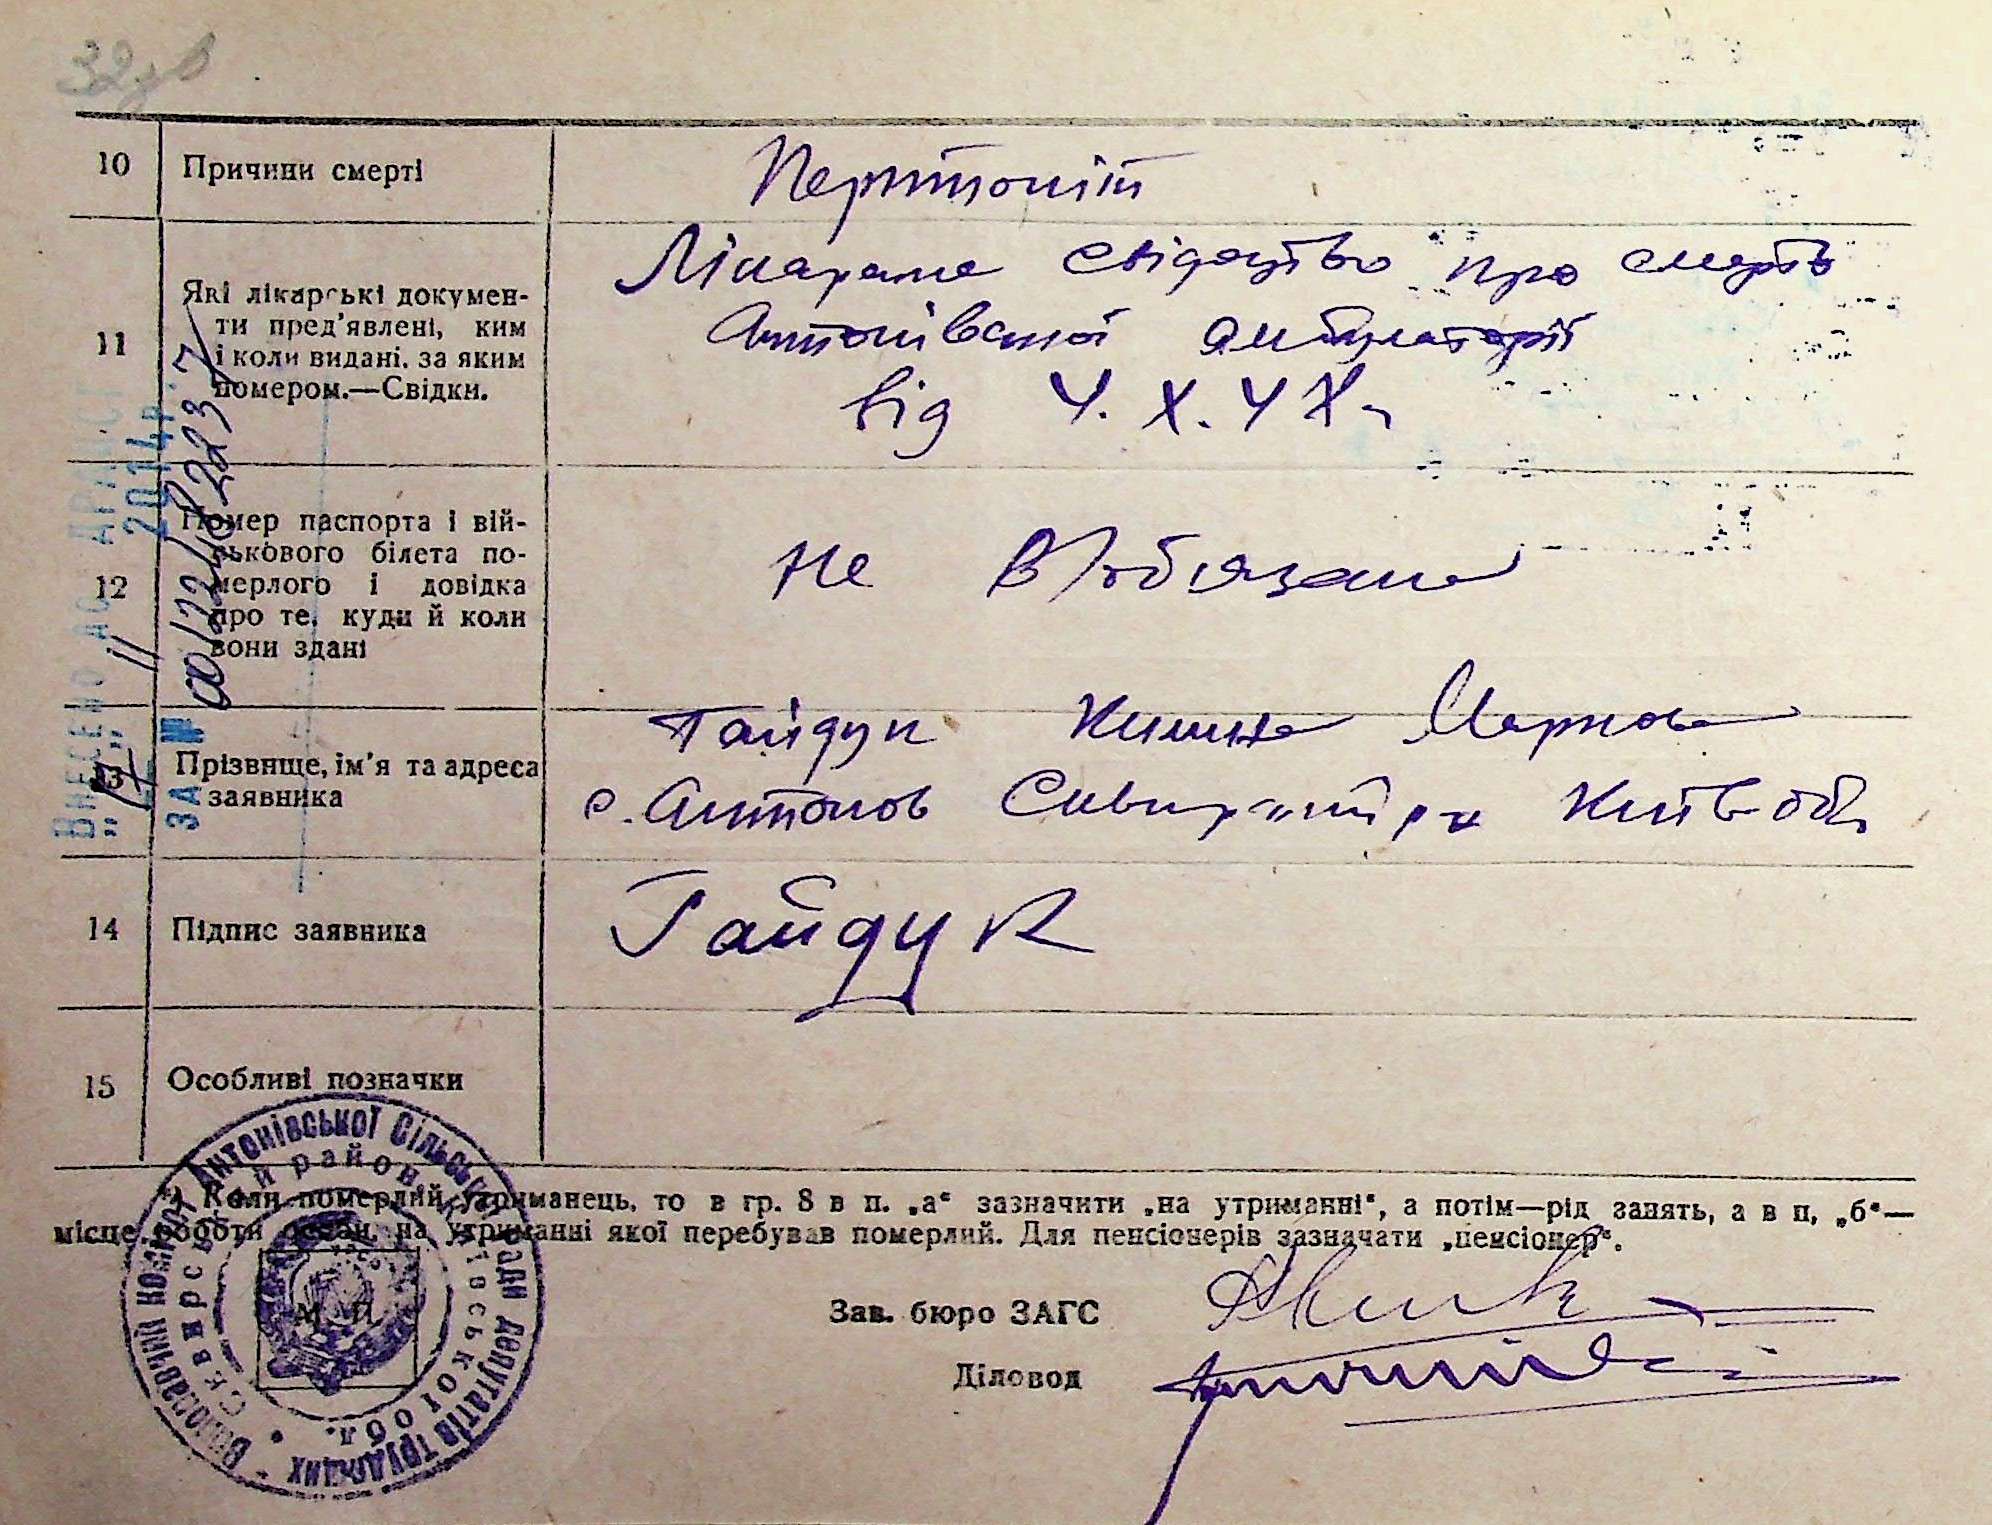 32
10 Причини смерті Перитоніт
11 Які лікарські докумен-
ти пред'явлені, ким
і коли видані, за яким
номером.—Свідки.
Лікарське свідоцтво про смерть
Антонівської амбулаторії
від 4. X. 47 г
12 Номер паспорта і вій-
ськового білета по-
мерлого і довідка
про те, куди й коли
вони здані
не в/обязана
13 Прізвище, ім'я та адреса
заявника
Гайдук Маркова
с. Антонов Сквирський р-н Київ обл
14 Підпис заявника Гайдук
15 Особливі позначки
*) Коли померлий утриманець, то в гр. 8 в п. „а“ зазначити „на утриманні“, а потім—рід занять, а в п, „б“—
місце роботи особи, на утриманні якої перебував померлий. Для пенсіонерів зазначати „пенсіонер“.
Зав. бюро ЗАГС
Діловод
М. П.
Виконавчий комітет Антонівської Сільської Ради депутатів трудящих
Сквирський район Київської обл.
ВНЕСЕНО ДО ДРАЦСГ
„11“ 2014р.
ЗА № 00122482237